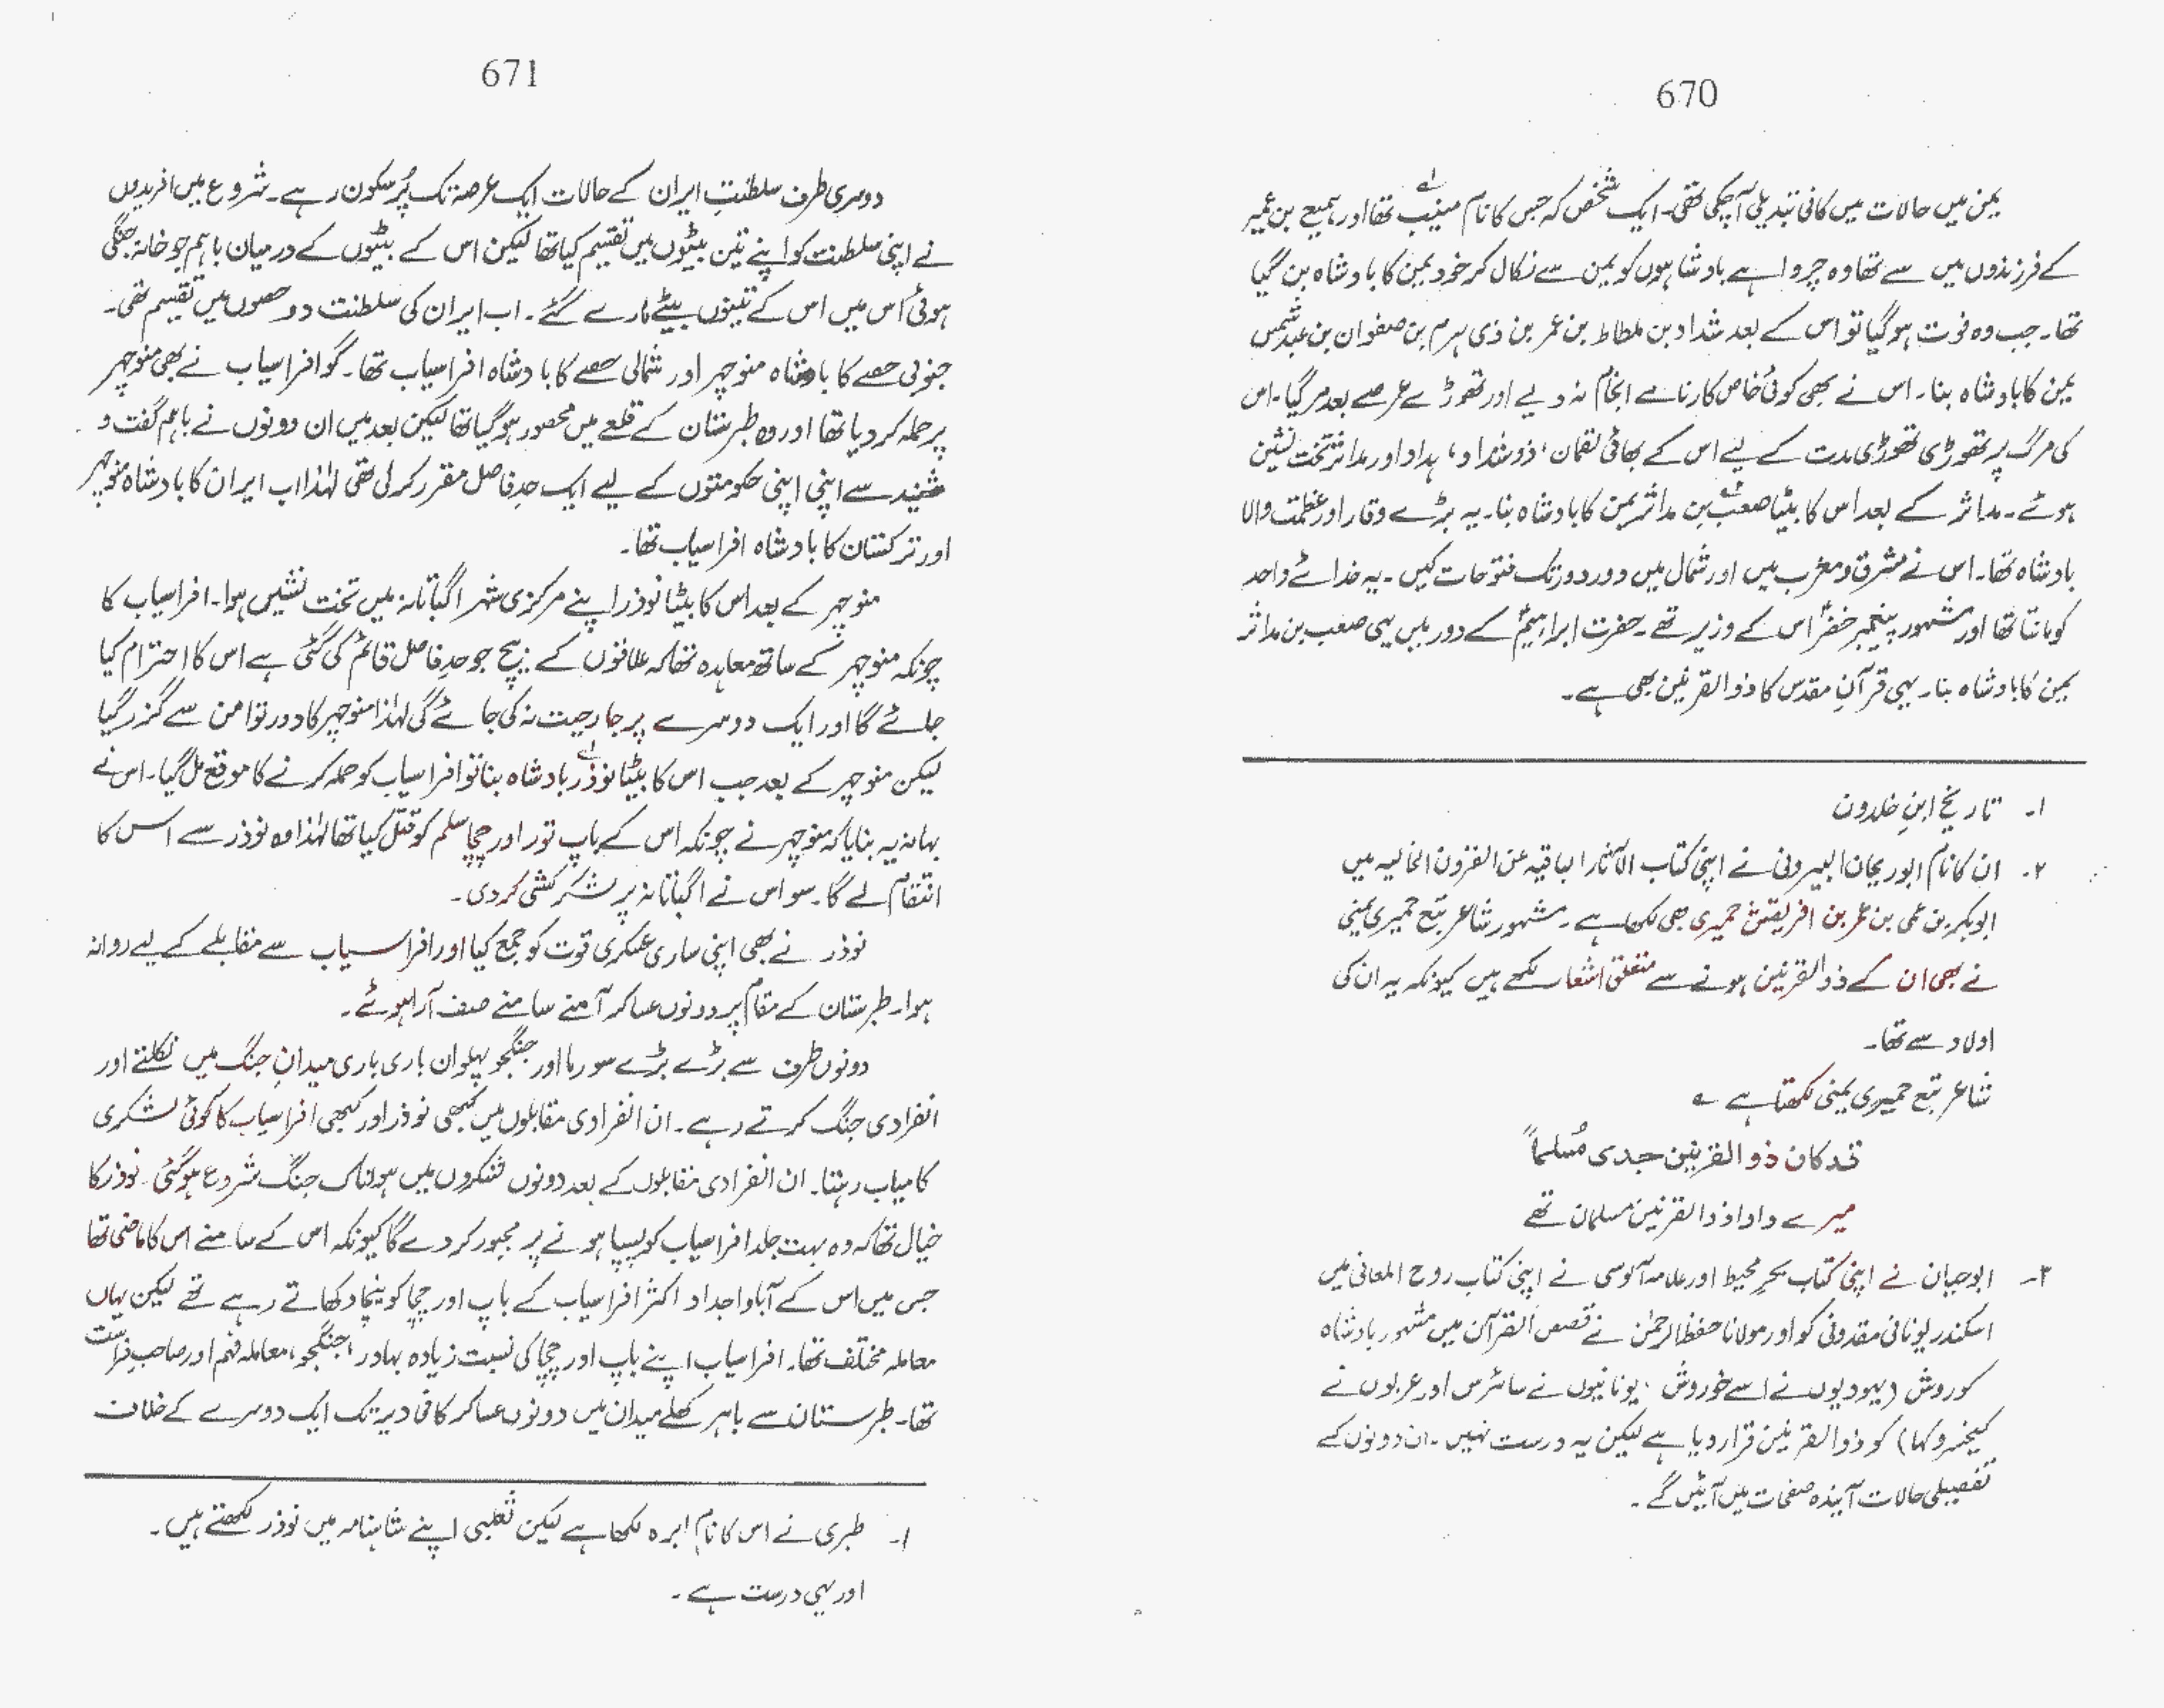 670
یمن میں حالات میں کافی تبدیلی آ چکی تھی۔ ایک شخص کہ جس کا نام مینیب تھا اور سمیع بن عمیر
کے فرزندوں میں سے تھا وہ چرواہے بادشاہوں کو یمن سے نکال کر خود یمن کا بادشاہ بن گیا
تھا۔ جب وہ فوت ہو گیا تو اس کے بعد شداد بن ملطاط بن عمر بن ذی ہرم بن صفوان بن عبدشمس
یمن کا بادشاہ بنا۔ اس نے بھی کوئی خاص کارنامے انجام نہ دیے اور تھوڑے عرصے بعد مر گیا۔ اس
کی مرگ پر تھوڑی تھوڑی مدت کے لیے اس کے بھائی لقمان، ذوشداد، ہداد اور مداثر تخت نشین
ہوئے۔ مداثر کے بعد اس کا بیٹا صعب بن مداثر یمن کا بادشاہ بنا۔ یہ بڑے وقار اور عظمت والا
بادشاہ تھا۔ اس نے مشرق و مغرب میں اور شمال میں دور دور تک فتوحات کیں۔ یہ خدائے واحد
کو مانتا تھا اور مشہور پیغمبر خضرؑ اس کے وزیر تھے۔ حضرت ابراہیمؑ کے دور میں یہی صعب بن مداثر
یمن کا بادشاہ بنا۔ یہی قرآنِ مقدس کا ذوالقرنین بھی ہے۔
۱۔ تاریخ ابنِ خلدون
۲۔ ان کا نام ابوریحان البیرونی نے اپنی کتاب الآثار الباقیہ عن القرون الخالیہ میں
ابوبکر بن عمی بن عمر بن افریقش حمیری بھی لکھا ہے۔ مشہور شاعر تبع حمیری یمنی
نے بھی ان کے ذوالقرنین ہونے سے متعلق اشعار لکھے ہیں کیونکہ یہ ان کی
اولاد سے تھا۔
شاعر تبع حمیری یمنی لکھتا ہے ؎
قد کان ذوالقرنین جدی مُسلماً
میرے دادا ذوالقرنین مسلمان تھے
۳۔ ابوحیان نے اپنی کتاب بحرِ محیط اور علامہ آلوسی نے اپنی کتاب روح المعانی میں
اسکندر یونانی مقدونی کو اور مولانا حفظ الرحمٰن نے قصص القرآن میں مشہور بادشاہ
کوروش (یہودیوں نے اسے خوروش، یونانیوں نے سائرس اور عربوں نے
کیخسرو کہا) کو ذوالقرنین قرار دیا ہے لیکن یہ درست نہیں۔ ان دونوں کے
تفصیلی حالات آیندہ صفحات میں آئیں گے۔
671
دوسری طرف سلطنتِ ایران کے حالات ایک عرصہ تک پُرسکون رہے۔ شروع میں افریدوں
نے اپنی سلطنت کو اپنے تین بیٹوں میں تقسیم کیا تھا لیکن اس کے بیٹوں کے درمیان باہم جو خانہ جنگی
ہوئی اس میں اس کے تینوں بیٹے مارے گئے۔ اب ایران کی سلطنت دو حصوں میں تقسیم تھی۔
جنوبی حصے کا بادشاہ منوچہر اور شمالی حصے کا بادشاہ افراسیاب تھا۔ گو افراسیاب نے بھی منوچہر
پر حملہ کر دیا تھا اور وہ طبرستان کے قلعے میں محصور ہو گیا تھا لیکن بعد میں ان دونوں نے باہم گفت و
شنید سے اپنی اپنی حکومتوں کے لیے ایک حدِ فاصل مقرر کر لی تھی لہٰذا اب ایران کا بادشاہ منوچہر
اور ترکستان کا بادشاہ افراسیاب تھا۔
منوچہر کے بعد اس کا بیٹا نوذر اپنے مرکزی شہر اگباتانہ میں تخت نشیں ہوا۔ افراسیاب کا
چونکہ منوچہر کے ساتھ معاہدہ تھا کہ علاقوں کے بیچ جو حدِ فاصل قائم کی گئی ہے اس کا احترام کیا
جائے گا اور ایک دوسرے پر جارحیت نہ کی جائے گی لہٰذا منوچہر کا دور تو امن سے گزر گیا
لیکن منوچہر کے بعد جب اس کا بیٹا نوذر بادشاہ بنا تو افراسیاب کو حملہ کرنے کا موقع مل گیا۔ اس نے
بہانہ یہ بنایا کہ منوچہر نے چونکہ اس کے باپ تور اور چچا سلم کو قتل کیا تھا لہٰذا وہ نوذر سے اس کا
انتقام لے گا۔ سو اس نے اگباتانہ پر لشکر کشی کر دی۔
نوذر نے بھی اپنی ساری عسکری قوت کو جمع کیا اور افراسیاب سے مقابلے کے لیے روانہ
ہوا۔ طبرستان کے مقام پر دونوں عساکر آمنے سامنے صف آرا ہوئے۔
دونوں طرف سے بڑے بڑے سورما اور جنگجو پہلوان باری باری میدانِ جنگ میں نکلتے اور
انفرادی جنگ کرتے رہے۔ ان انفرادی مقابلوں میں کبھی نوذر اور کبھی افراسیاب کا کوئی لشکری
کامیاب رہتا۔ ان انفرادی مقابلوں کے بعد دونوں لشکروں میں ہولناک جنگ شروع ہو گئی۔ نوذر کا
خیال تھا کہ وہ بہت جلد افراسیاب کو پسپا ہونے پر مجبور کر دے گا کیونکہ اس کے سامنے اس کا ماضی تھا
جس میں اس کے آباو اجداد اکثر افراسیاب کے باپ اور چچا کو نیچا دکھاتے رہے تھے لیکن یہاں
معاملہ مختلف تھا۔ افراسیاب اپنے باپ اور چچا کی نسبت زیادہ بہادر، جنگجو، معاملہ فہم اور صاحبِ فراست
تھا۔ طبرستان سے باہر کھلے میدان میں دونوں عساکر کافی دیر تک ایک دوسرے کے خلاف
۱۔ طبری نے اس کا نام ابرہ لکھا ہے لیکن ثعلبی اپنے شاہنامہ میں نوذر لکھتے ہیں۔
اور یہی درست ہے۔